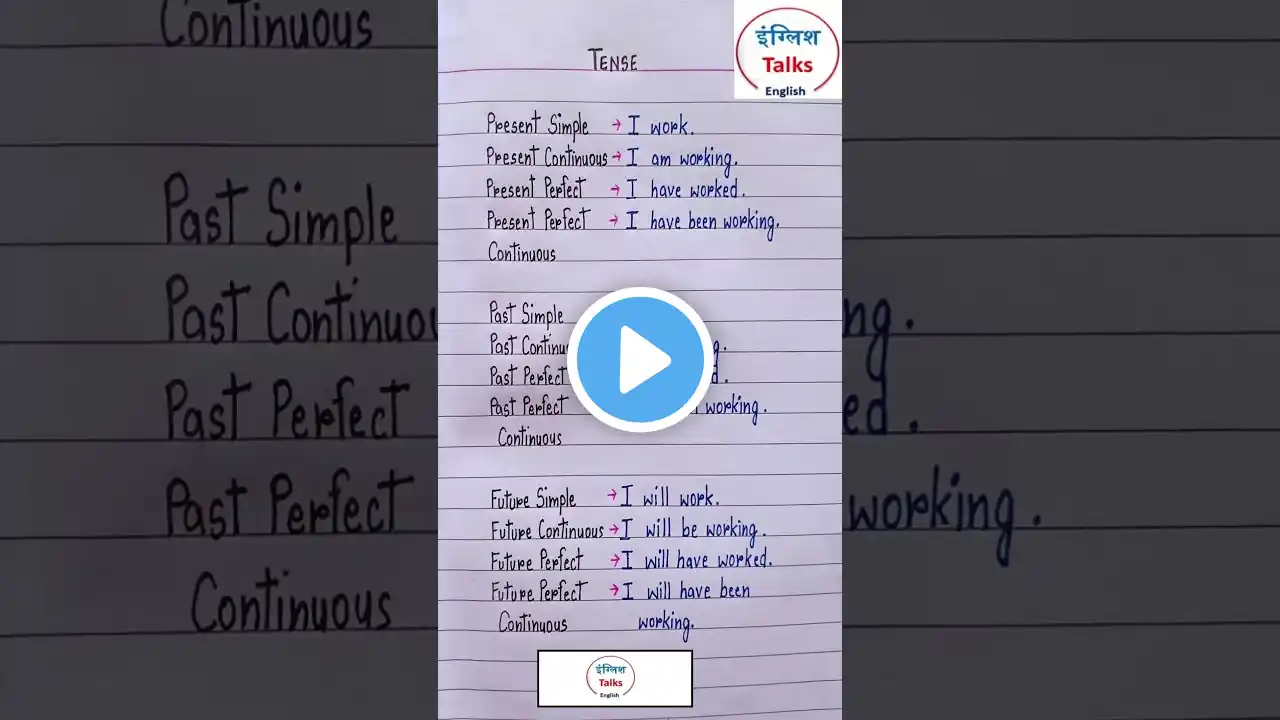 Continuous
Past Simple
Past
Past Perfect
Past Perfect
Continuous
TENSE
इंग्लिश
Talks
English
Present Simple → I work.
Present Continuous → I am working.
Present Perfect → I have worked.
Present Perfect → I have been working.
Continuous
Past Simple
Past
Past Perfect
Past Perfect working.
Continuous
Future Simple → I will work.
Future Continuous → I will be working.
Future Perfect → I will have worked.
Future Perfect → I will have been
Continuous working.
इंग्लिश
Talks
English
working.